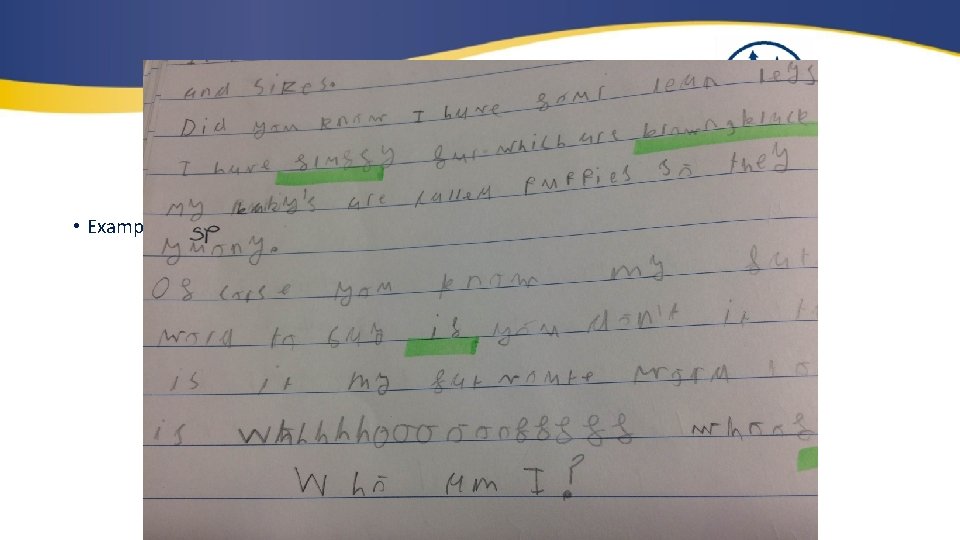 and sizes.
Did you know I have four lean legs
I have fluffy fur which are brown & black
• Examp
my baby's are called puppies so they
sp
yuony.
Of corse you know my fat
word to say if you don't it
is it my fatroute word
is whhhhooooooffffff whoof
Who am I?